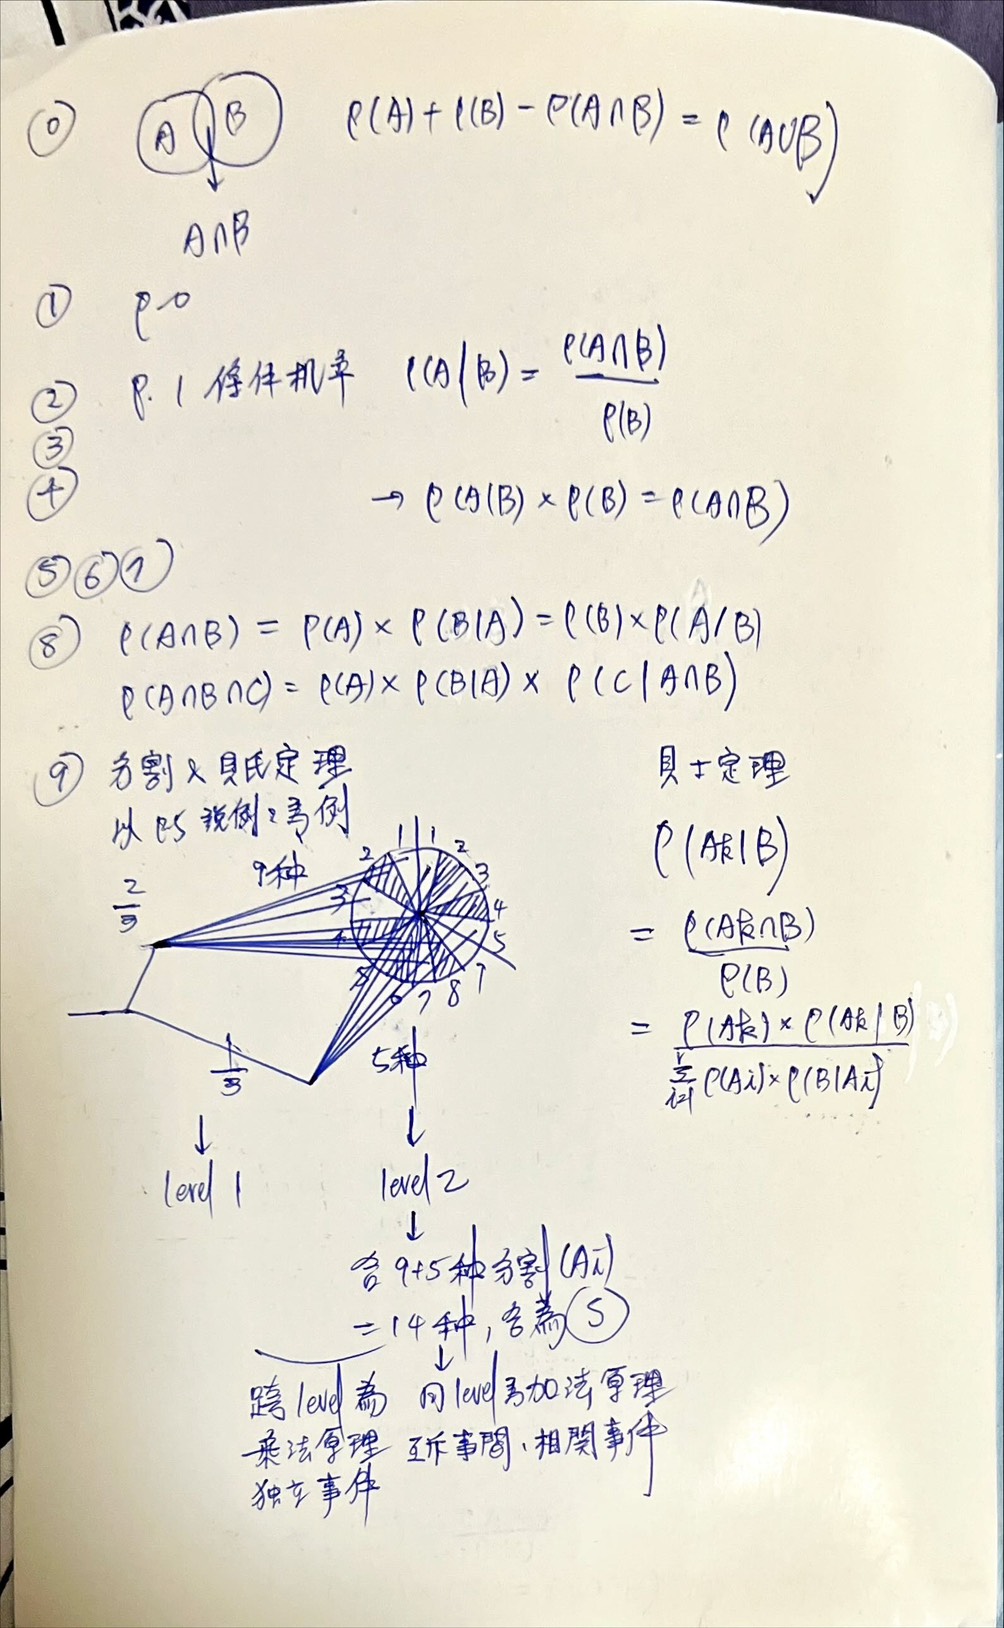 ⓪ A B P(A)+P(B)-P(A∩B)=P(A∪B)
A∩B
① P.0
② P.1 條件机率 P(A|B)=P(A∩B)/P(B)
③
④ → P(A|B)×P(B)=P(A∩B)
⑤⑥⑦
⑧ P(A∩B)=P(A)×P(B|A)=P(B)×P(A|B)
P(A∩B∩C)=P(A)×P(B|A)×P(C|A∩B)
⑨ 分割 & 貝氏定理
以 P5 說例2為例
9种
2/3
1 1 2 3 4 5 7 8 7 6 5 4 3 2
1/3
5种
level 1
level 2
含9+5种分割(Ai)
=14种,各為 S
跨level為
乘法原理
独立事件
同level為加法原理
互斥事間、相関事件
貝士定理
P(Ak|B)
=P(Ak∩B)/P(B)
=P(Ak)×P(Ak|B)/Σ i=1 P(Ai)×P(B|Ai)